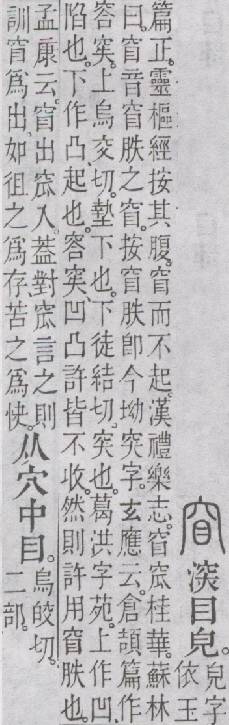 窅 深目皃。皃字
依玉
篇正。靈樞經。按其腹。窅而不起。漢禮樂志。窅窊桂華。蘇林
曰。窅音窅胅之窅。按窅胅卽今坳突字。玄應云。倉頡篇作
容突。上烏交切。墊下也。下徒結切。突也。葛洪字苑。上作凹
陷也。下作凸起也。容突、凹凸許皆不收。然則許用窅胅也。
孟康云。窅出窊入。葢對窊言之則
訓窅爲出。如徂之爲存、苦之爲快。
从穴中目。烏皎切。
二部。